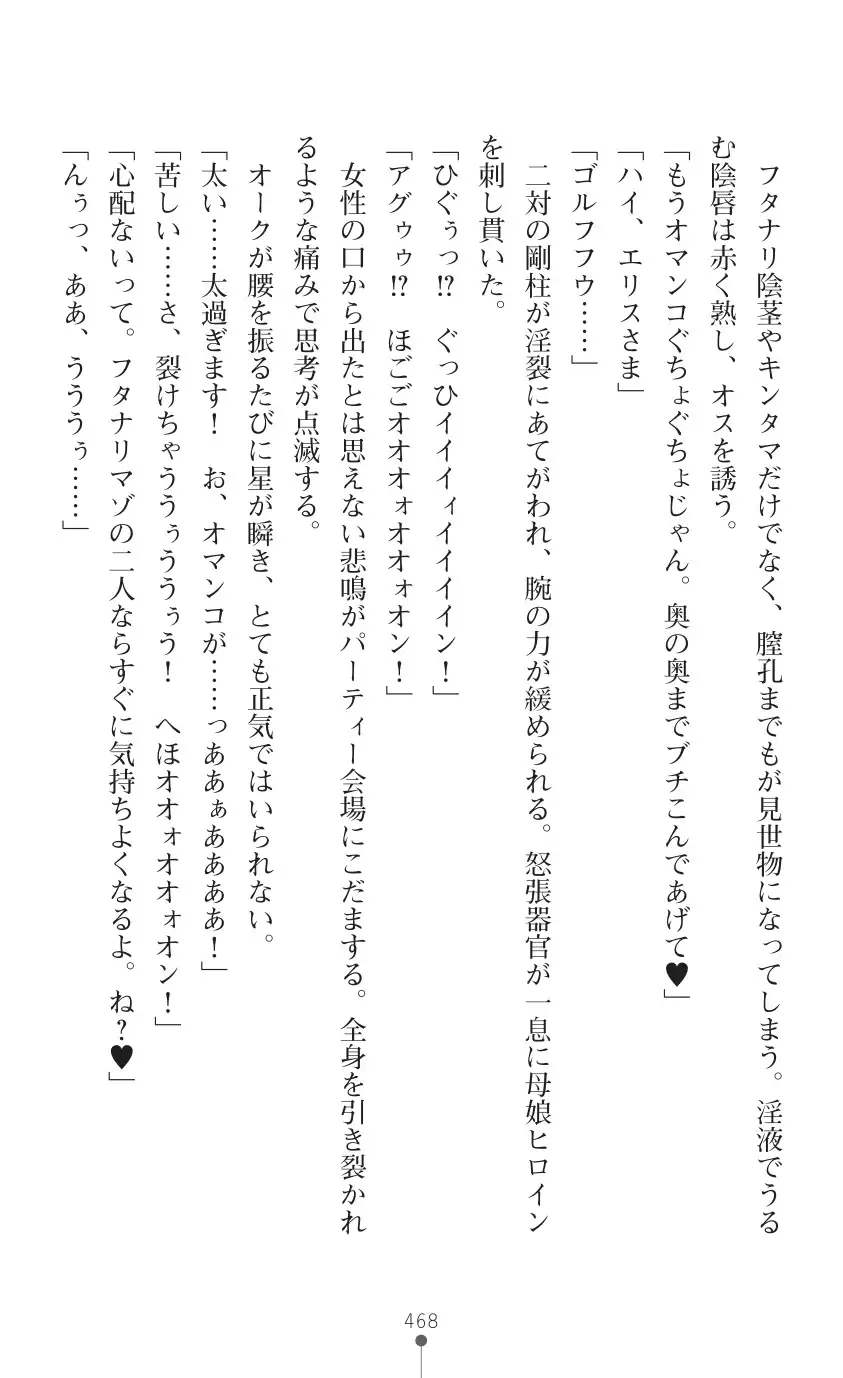 フタナリ陰茎やキンタマだけでなく、膣孔までもが見世物になってしまう。淫液でうる
む陰唇は赤く熟し、オスを誘う。
「もうオマンコぐちょぐちょじゃん。奥の奥までブチこんであげて♥」
「ハイ、エリスさま」
「ゴルフフウ……」
　二対の剛柱が淫裂にあてがわれ、腕の力が緩められる。怒張器官が一息に母娘ヒロイン
を刺し貫いた。
「ひぐぅっ!?　ぐっひイイイィイイイイン！」
「アグゥゥ!?　ほごごオオオォオオォオン！」
　女性の口から出たとは思えない悲鳴がパーティー会場にこだまする。全身を引き裂かれ
るような痛みで思考が点滅する。
　オークが腰を振るたびに星が瞬き、とても正気ではいられない。
「太い……太過ぎます！　お、オマンコが……っああぁああああ！」
「苦しい……さ、裂けちゃううぅううぅう！　へほオオォオオォオン！」
「心配ないって。フタナリマゾの二人ならすぐに気持ちよくなるよ。ね？♥」
「んぅっ、ああ、うううぅ……」
468